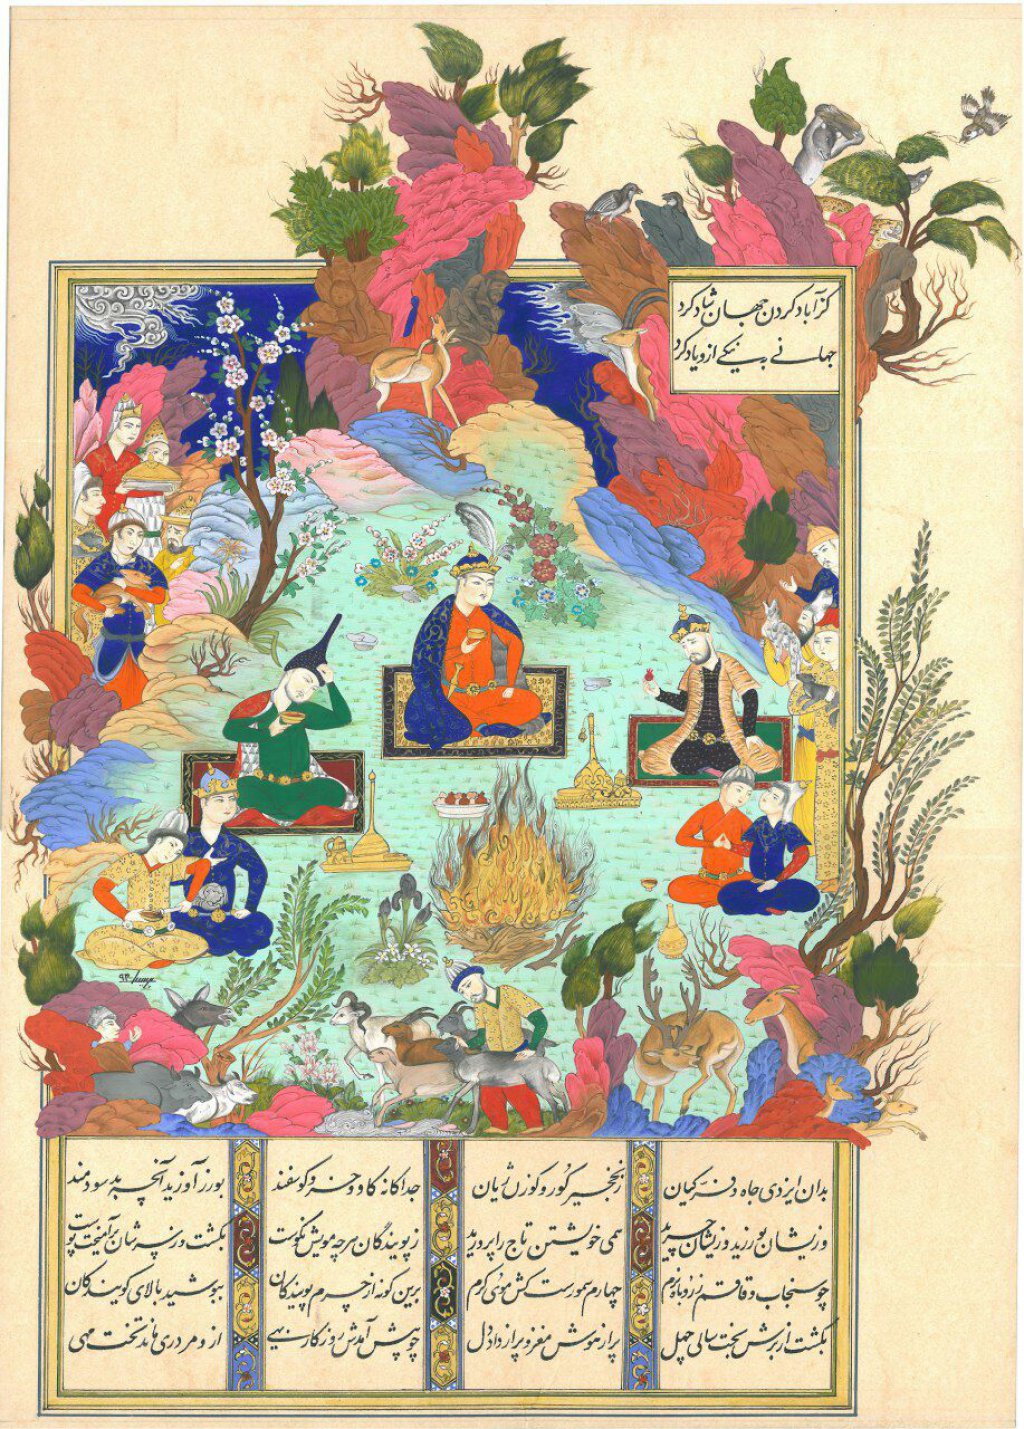 کز آباد کردن جهان شاد کرد
جهانی به نیکی ازو یاد کرد
بدان ایزدی جاه و فر کیان ز نخچیر گور و گوزن ژیان
جدا کانه کاو و خر و کوسفند بورز آورید آنچه بد سودمند
وزیشان بورزید وزیشان چرید همی خویشتن تاج را پرورید
ز پویندگان هر چه مویش نکوست بکشت و ز سرشان برآهیخت پوست
چو سنجاب و قاقم چو روباه نرم چهارم سمورست کش موی گرم
برین گونه از چرم پویندکان بپوشید بالای کویندکان
بکشت از برش بخت سالی چهل پر از هوش مغز و پر از داد دل
چو پیش آمدش روزگار بهی ازو مردری ماند تخت مهی